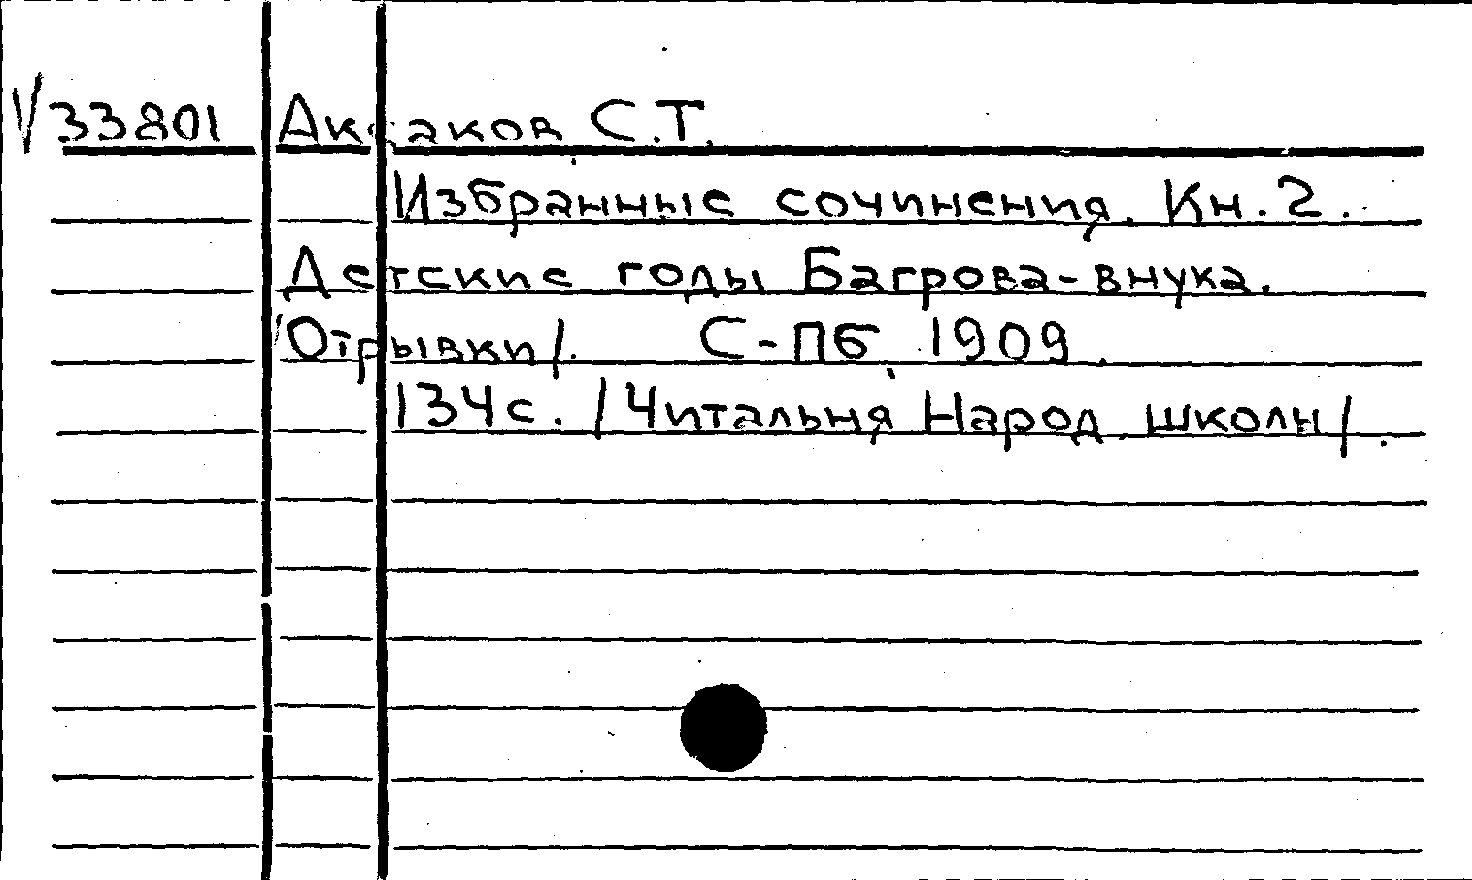 V 33801 Аксаков С.Т.
Избранные сочинения. Кн. 2.
Детские годы Багрова-внука.
/Отрывки/. С-Пб. 1909.
134с. /Читальня Народ. школы/.